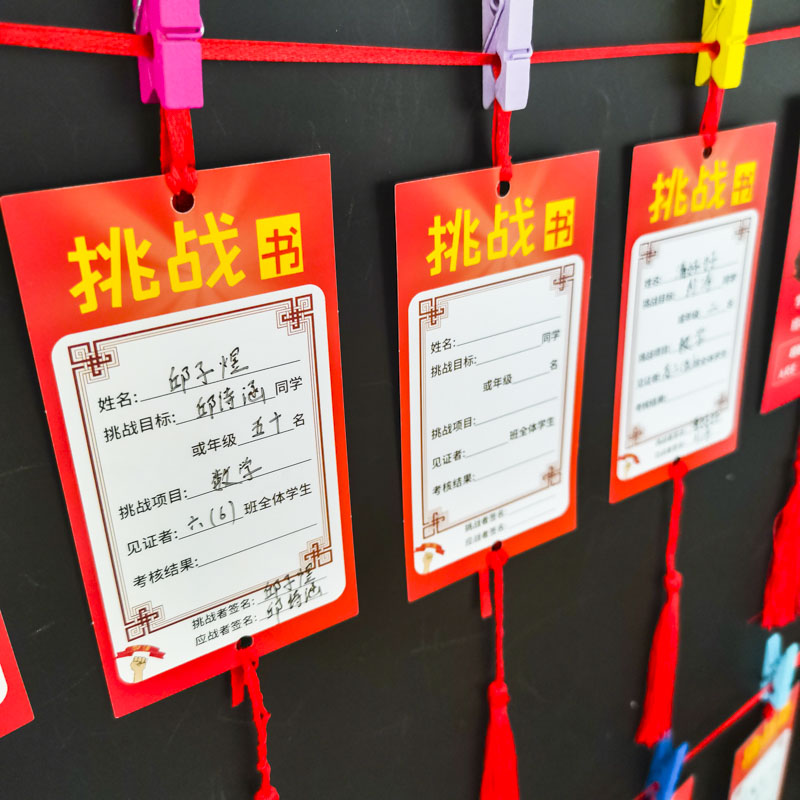 挑战书
姓名: 邱子煜
挑战目标: 邱诗涵 同学
或年级 五十 名
挑战项目: 数学
见证者: 六(6) 班全体学生
考核结果:
挑战者签名: 邱子煜
应战者签名: 邱诗涵
挑战书
姓名: 同学
挑战目标:
或年级 名
挑战项目:
见证者: 班全体学生
考核结果:
挑战者签名:
应战者签名:
挑战书
姓名:
挑战目标: 同学
或年级 名
挑战项目: 数学
见证者: 班全体学生
考核结果: